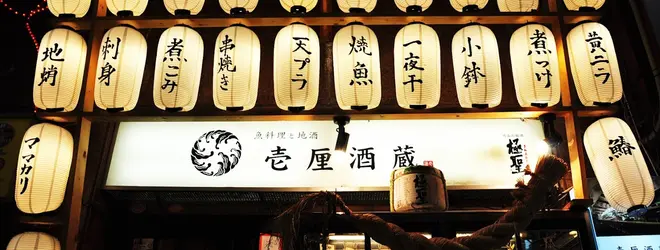 地蛸
刺身
煮こみ
串焼き
天プラ
焼魚
一夜干
小鉢
煮つけ
黄ニラ
ママカリ
魚料理と地酒
壱厘酒蔵
極聖
鰆